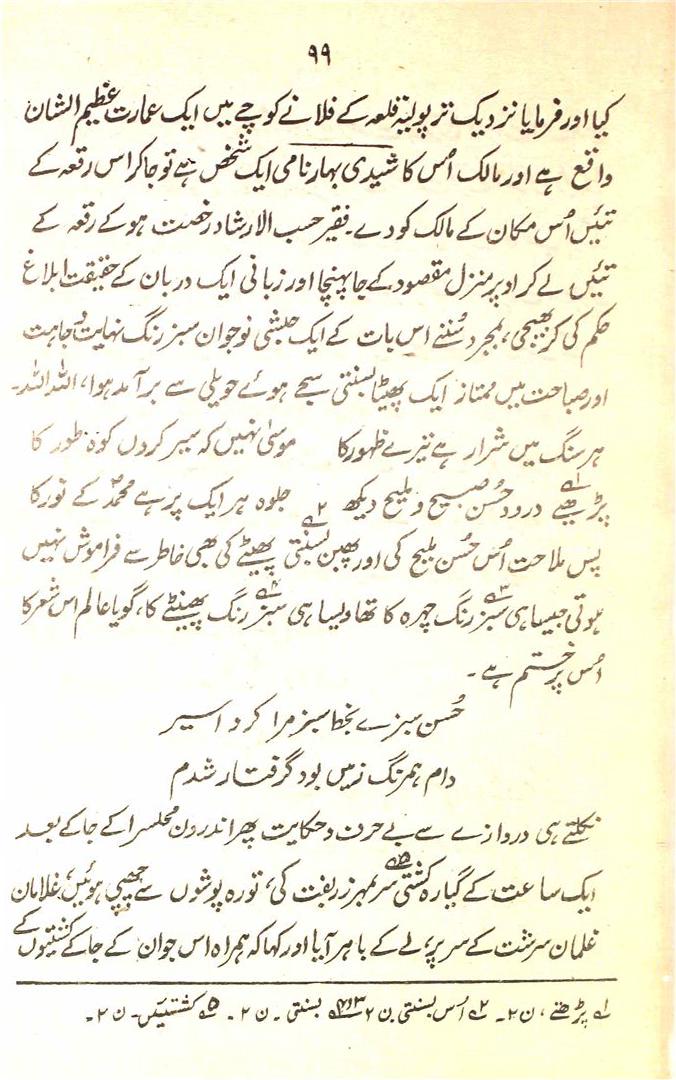 ۹۹
کیا اور فرمایا نزدیک ترپولیۂ قلعہ کے فلانے کوچے میں ایک عمارت عظیم الشان
واقع ہے اور مالک اُس کا شیدی بہار نامی ایک شخص ہے تو جا کر اس رقعہ کے
تئیں اُس مکان کے مالک کو دے۔ فقیر حسب الارشاد رخصت ہو کے رقعہ کے
تئیں لے کر اوپر منزل مقصود کے جا پہنچا اور زبانی ایک دربان کے حقیقت ابلاغ
حکم کی کر بھیجی، بمجرد سُننے اس بات کے ایک حبشی نوجوان سبز رنگ نہایت وجاہت
اور صباحت میں ممتاز ایک پھینٹا بسنتی سجے ہوئے حویلی سے برآمد ہوا، اللہ اللہ۔
ہر سنگ میں شرار ہے تیرے ظہور کا موسیٰ نہیں کہ سیر کروں کوہ طور کا
پڑھیے۱ درود حُسن صبیح و ملیح دیکھ جلوہ ہر ایک پر ہے محمدؐ کے نور کا
پس ملاحت اُس حُسن ملیح کی اور پھبن بسنتی۲ پھینٹے کی بھی خاطر سے فراموش نہیں
ہوتی جیسا ہی سبز۳ رنگ چہرہ کا تھا ویسا ہی سبز۴ رنگ پھینٹے کا، گویا عالم اس شعر کا
اُس پر ختم ہے۔
حُسن سبزے بخط سبز مرا کرد اسیر
دام ہمرنگ زمیں بود گرفتار شدم
نکلتے ہی دروازے سے بے حرف و حکایت پھر اندرون محلسرا کے جا کے بعد
ایک ساعت کے گیارہ کشتی۵ سربمہر زربفت کی، تورہ پوشوں سے چھپی ہوئیں، غلامان
غلمان سرشت کے سر پر، لے کے باہر آیا اور کہا کہ ہمراہ اس جوان کے جا کے کشتیوں کے
۱ پڑھئے، ن ۲۔ ۲ اُس بسنتی ن ۲ ۳، ۴ بسنتی۔ ن ۲۔ ۵ کشتیئیں۔ ن ۲۔